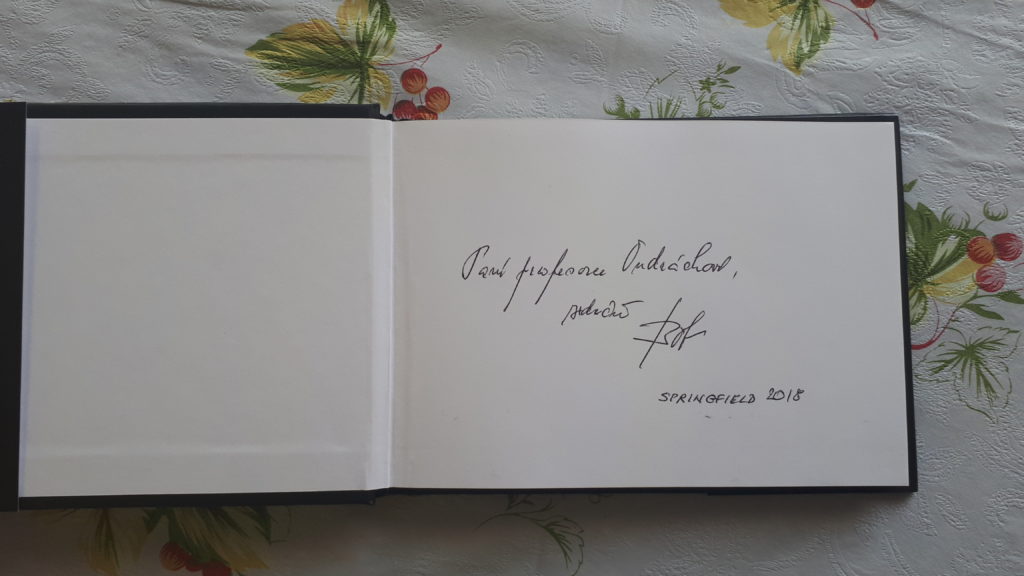 Panu profesoru Ondráčkovi,
srdečně
SPRINGFIELD 2018